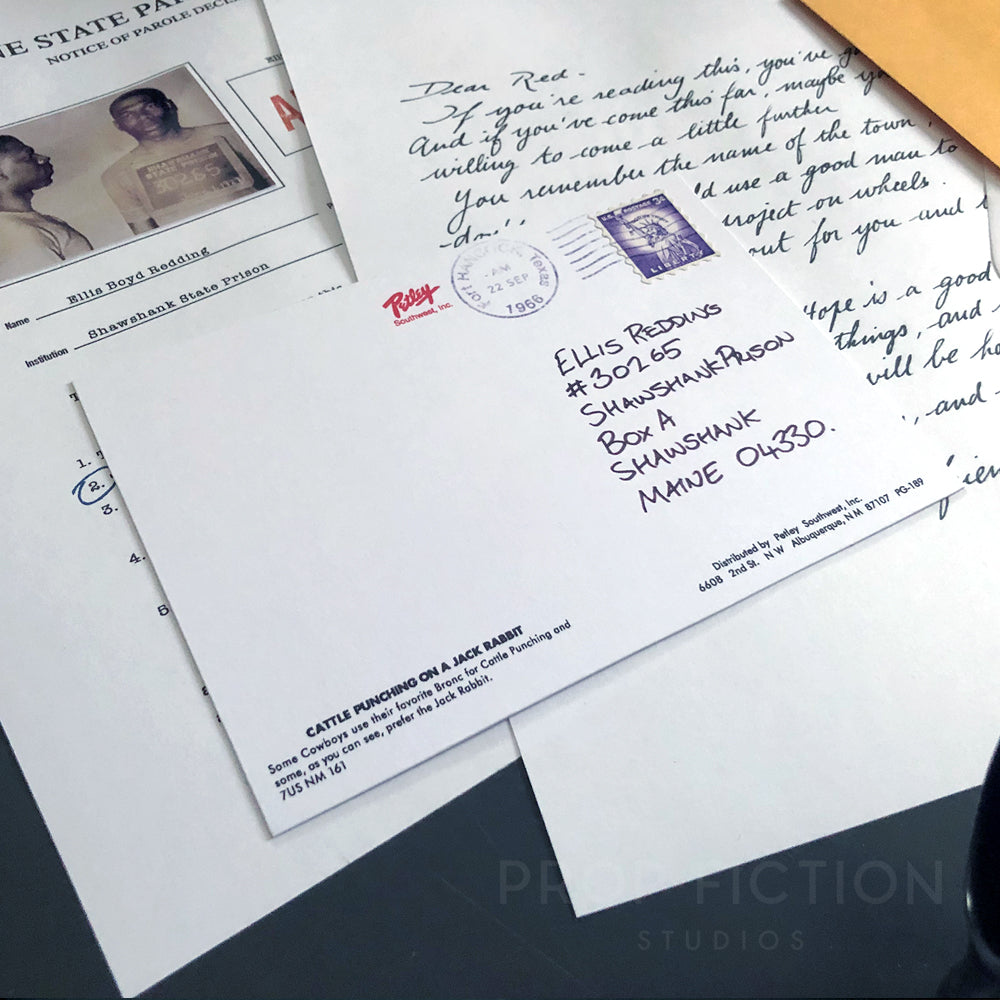 NE STATE PA
NOTICE OF PAROLE
30265
Name Ellis Boyd Redding
Institution Shawshank State Prison
1.
2.
3.
4.
5
Dear Red.
If you're reading this, you've
And if you've come this far, maybe
willing to come a little further
You remember the name of the town,
use a good man to
project on wheels.
out for you and
Hope is a good
things, and
will be
, and
Petley
Southwest, Inc.
FORT HANCOCK, Texas
AM
22 SEP
1966
U.S. POSTAGE 3¢
LIBERTY
ELLIS REDDING
#30265
SHAWSHANK PRISON
BOX A
SHAWSHANK
MAINE 04330.
Distributed by Petley Southwest, Inc.
6608 2nd St. N W Albuquerque, N.M 87107 PG-189
CATTLE PUNCHING ON A JACK RABBIT
Some Cowboys use their favorite Bronc for Cattle Punching and
some, as you can see, prefer the Jack Rabbit.
7US NM 161
PROP FICTION
STUDIOS